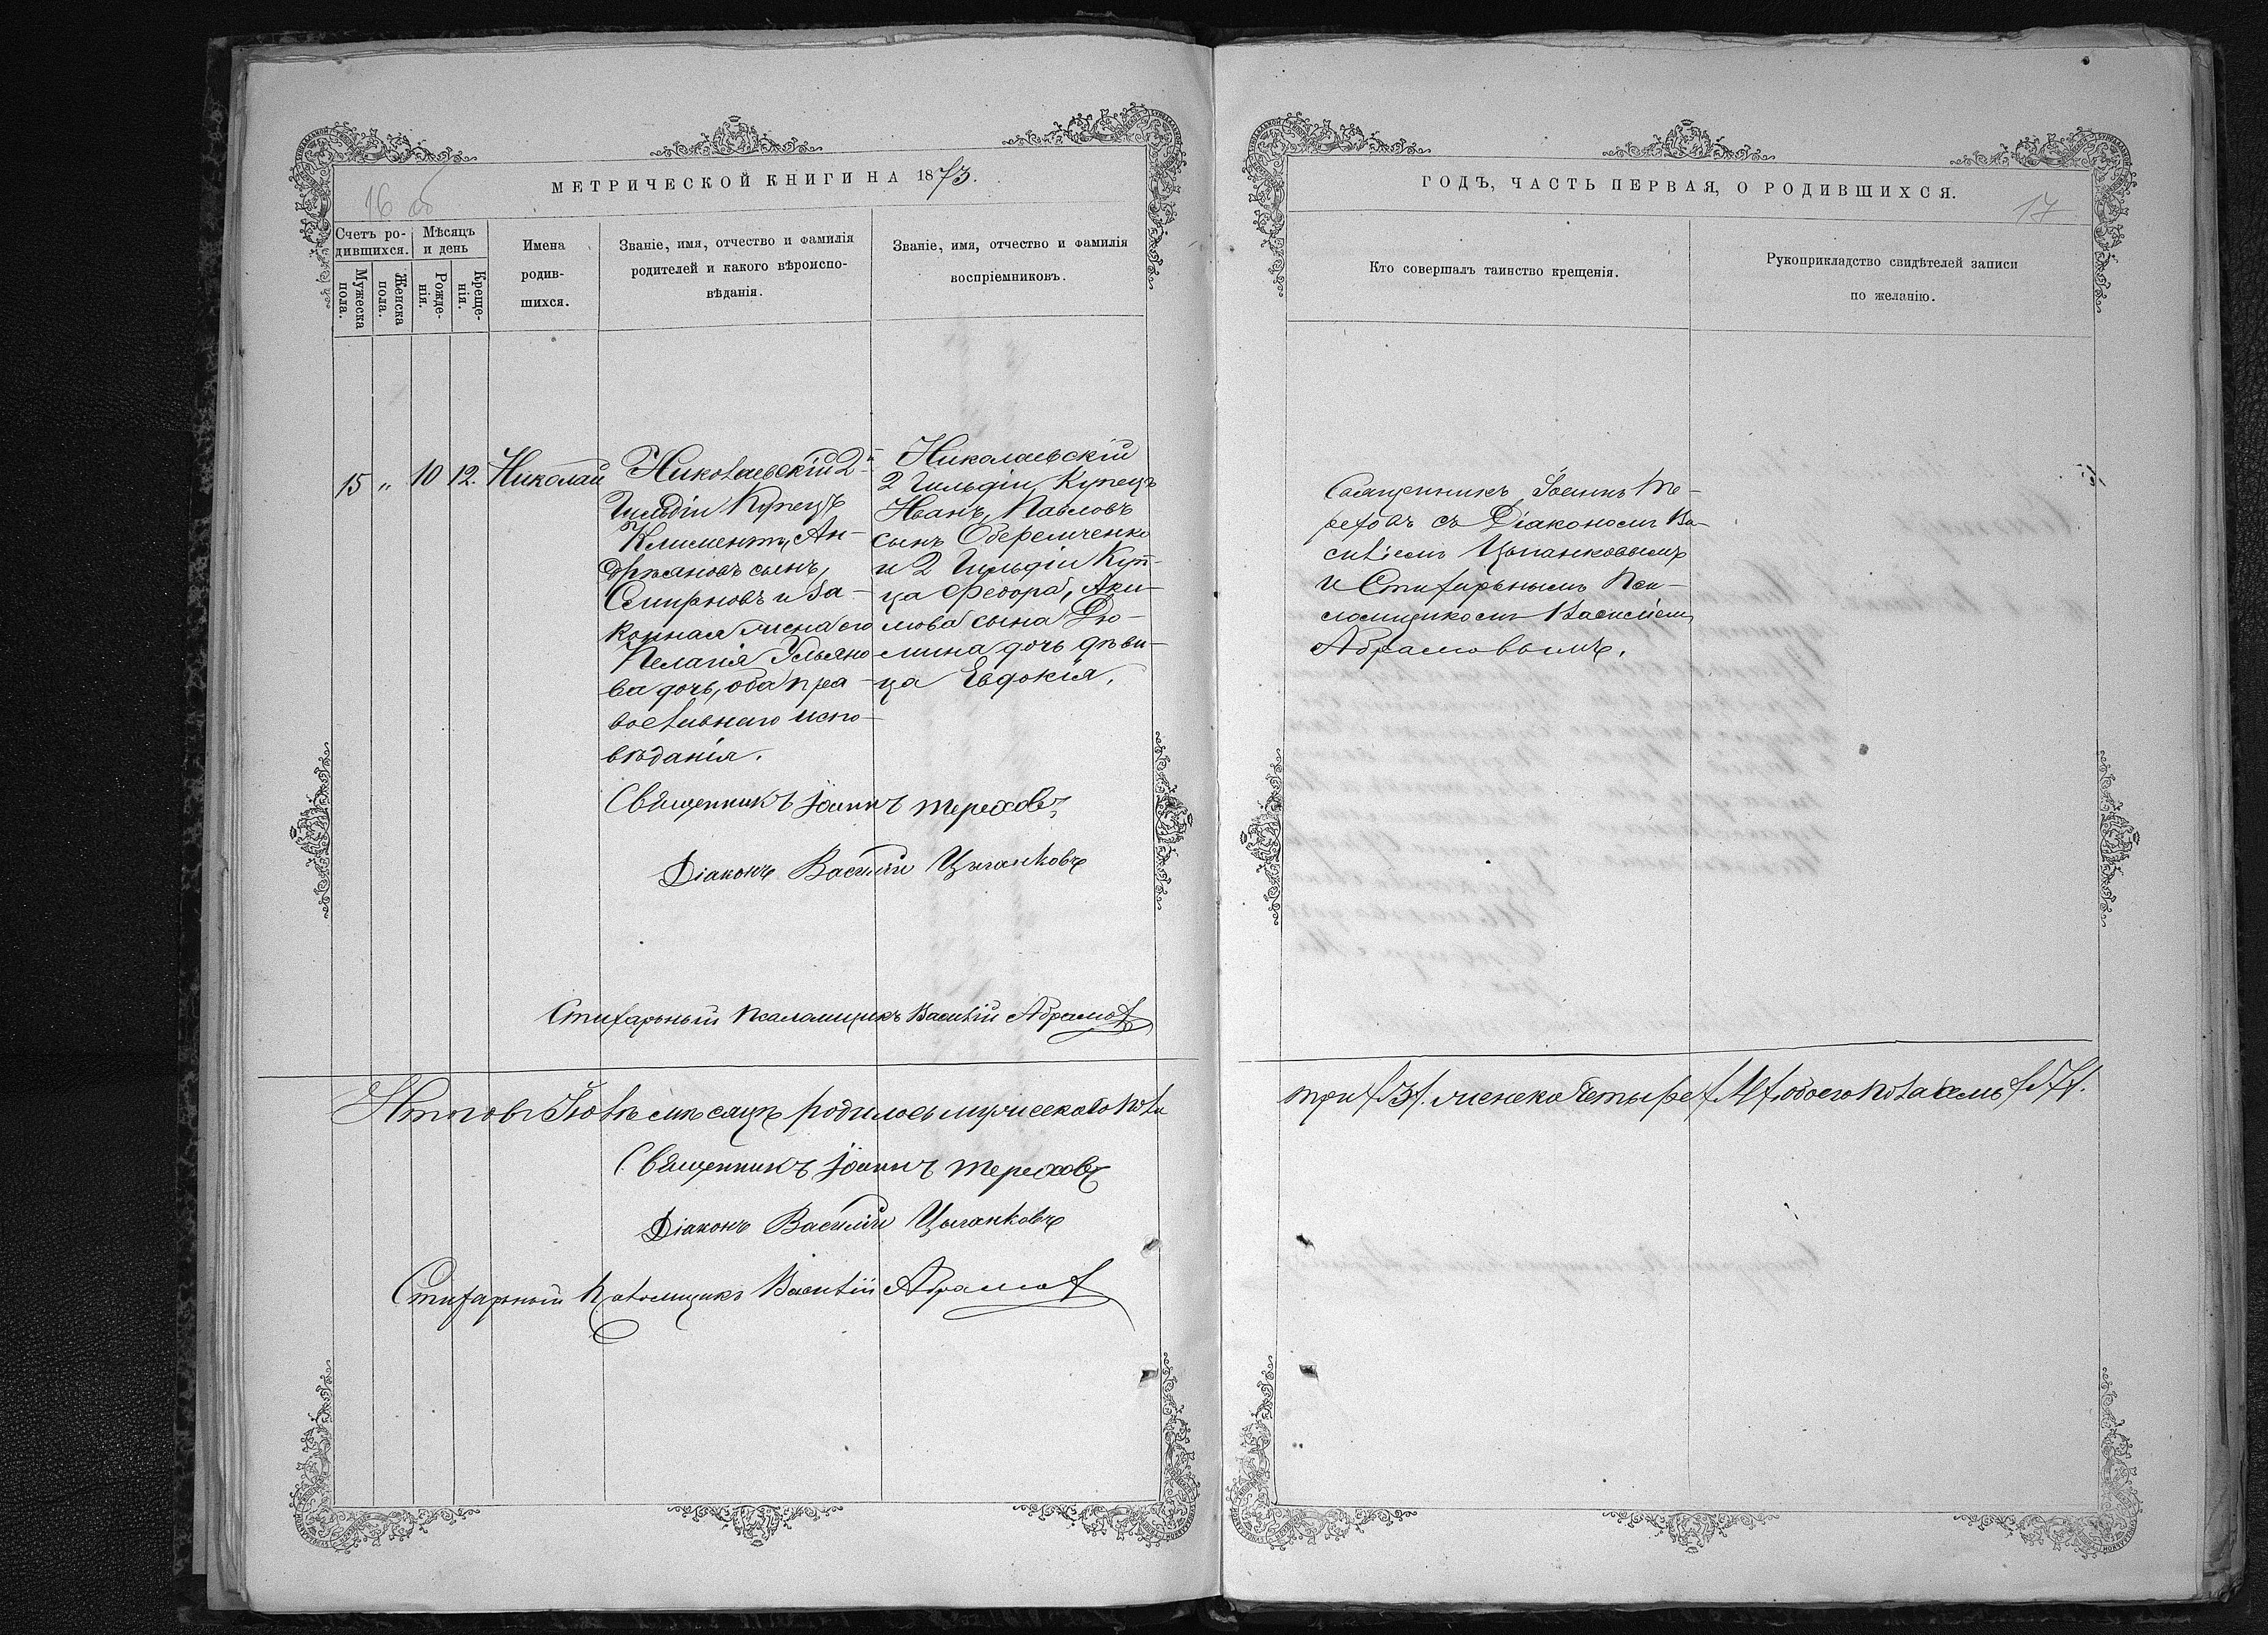 16 об
МЕТРИЧЕСКОЙ КНИГИ НА 1873.
Счетъ ро-
дившихся.
Мѣсяцъ
и день
Мужеска
пола.
Женска
пола.
Рожде-
нія.
Креще-
нія.
Имена
родив-
шихся.
Званіе, имя, отчество и фамилія
родителей и какого вѣроиспо-
вѣданія.
Званіе, имя, отчество и фамилія
воспріемниковъ.
15 „ 10 12. Николай
Николаевскій 2й
Гильдіи Купецъ
Климентъ, Ан-
дреяновъ сынъ,
Смирновъ и за-
конная жена его
Пелагія Ульяно-
ва дочь, оба пра-
вославнаго испо-
вѣданія.
Николаевскій
2 Гильдіи Купецъ
Иванъ, Павловъ
сынъ Оберемченко
и 2 Гильдіи Куп-
ца Федора, Аки-
мова сына Дю-
мина дочь дѣви-
ца Евдокія.
Священникъ Іоаннъ Тереховъ
Діаконъ Василій Цыганковъ
Стихарный Псаломщикъ Василій Абрамовъ
Итого въ Іюлѣ мѣсяцѣ родилось мужескаго пола
Священникъ Іоаннъ Тереховъ
Діаконъ Василій Цыганковъ
Стихарный Псаломщикъ Василій Абрамовъ
ГОДЪ, ЧАСТЬ ПЕРВАЯ, О РОДИВШИХСЯ.
17
Кто совершалъ таинство крещенія.
Рукоприкладство свидѣтелей записи
по желанію.
Священникъ Іоаннъ Те-
реховъ съ Діакономъ Ва-
силіемъ Цыганковымъ
и Стихарнымъ Пса-
ломщикомъ Василіемъ
Абрамовымъ.
три /3/. женска четыре /4/ обоего пола семь /7/.